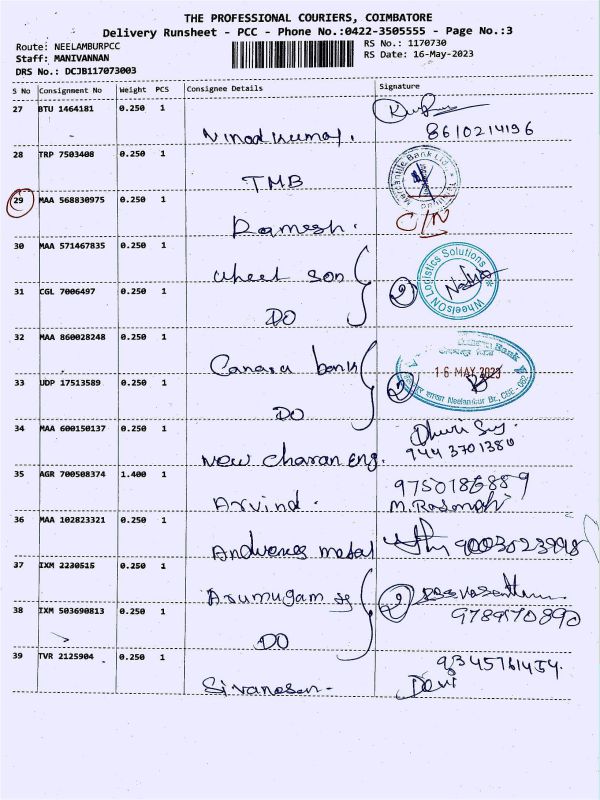 THE PROFESSIONAL COURIERS, COIMBATORE
Delivery Runsheet - PCC - Phone No.:0422-3505555 - Page No.:3
Route: NEELAMBURPCC
Staff: MANIVANNAN
DRS No.: DCJB117073003
RS No.: 1170730
RS Date: 16-May-2023
S No Consignment No Weight PCS Consignee Details Signature
27 BTU 1464181 0.250 1
Vinodkumar. 8610214196
28 TRP 7503408 0.250 1
TMB
Mercantile Bank Ltd.
29 MAA 568830975 0.250 1
Ramesh. C/N
30 MAA 571467835 0.250 1
Wheel Son 2
WheelSON Logistics Solutions
31 CGL 7006497 0.250 1
DO
32 MAA 860028248 0.250 1
Canara bank 2
Bank
16 MAY 2023
Neelambur Br., CBE -
33 UDP 17513589 0.250 1
DO
34 MAA 600150137 0.250 1
New Charan Eng. 9443701380
35 AGR 700508374 1.400 1
Arvind.
36 MAA 102823321 0.250 1
metal
37 IXM 2230515 0.250 1
Arumugam 2
38 IXM 503690813 0.250 1
DO
39 TVR 2125904 0.250 1
Sivanesan. Devi